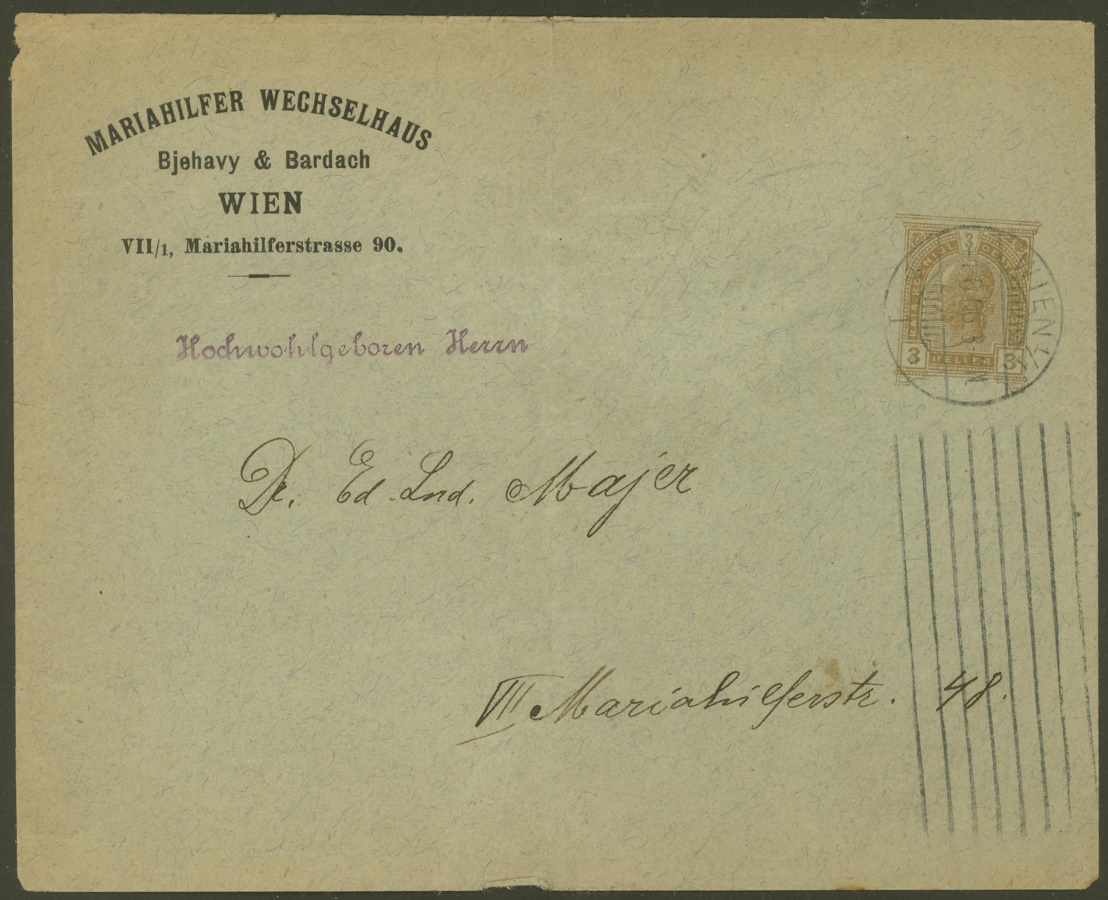 MARIAHILFER WECHSELHAUS
Bjehavy & Bardach
WIEN
VII/1, Mariahilferstrasse 90.
Hochwohlgeboren Herrn
Dr. Ed. Lnd. Majer
VII Mariahilferstr. 48.
3
3 HELLER 3
WIEN